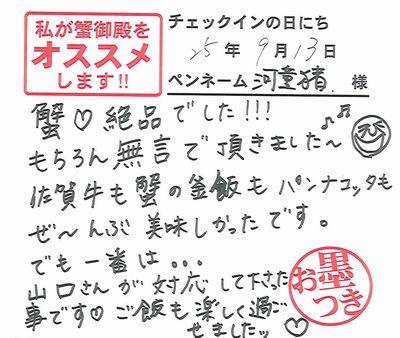 私が蟹御殿を
オススメ
します!!
チェックインの日にち
25年9月13日
ペンネーム 河童猪 様
蟹♡絶品でした!!!
もちろん無言で頂きました〜♪♬
佐賀牛も蟹の釜飯もパンナコッタも
ぜ〜んぶ美味しかったです。
でも一番は...
山口さんが対応して下さった
事です♡ご飯も楽しく過ご
せましたッ♡
お墨
つき